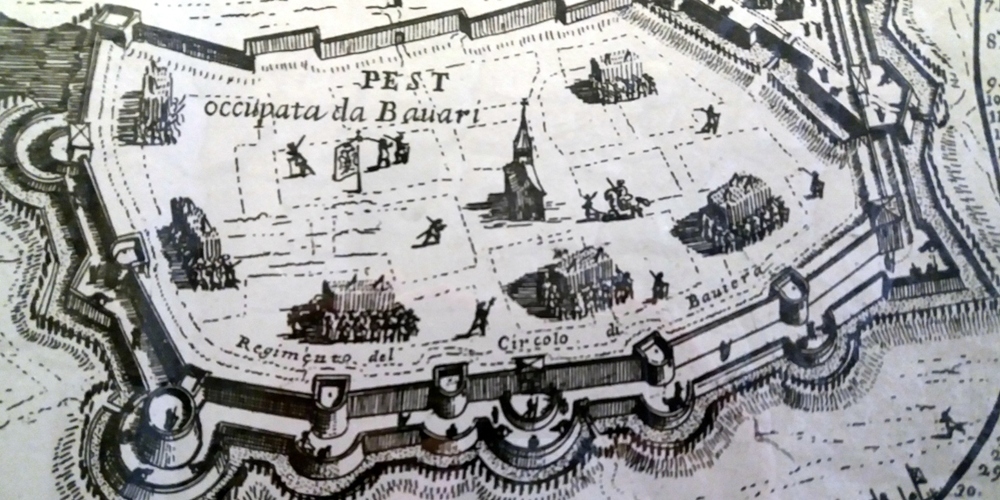 PEST
occupata da Bauari
Regimento del Circolo di Bauiera
8
9
20.